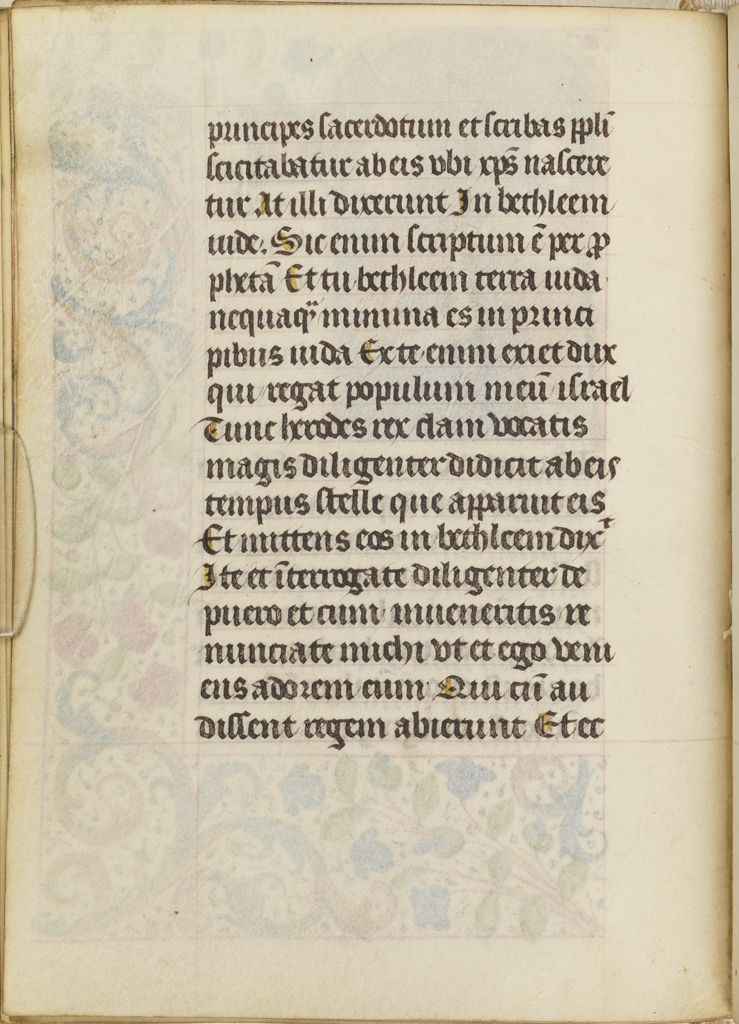 principes sacerdotum et scribas ppl̄i
scicitabatur ab eis vbi xp̄s nascere
tur At illi dixerunt In bethleem
iude. Sic enim scriptum ē per ꝓ
phetā Et tu bethleem terra iuda
nequaq̄ minima es in princi
pibus iuda Ex te enim exiet dux
qui regat populum meū israel
Tunc herodes rex clam vocatis
magis diligenter didicit ab eis
tempus stelle que apparuit eis
Et mittens eos in bethleem dixᵗ
Ite et īterrogate diligenter de
puero et cum inueneritis re
nunciate michi vt et ego veni
ens adorem eum Qui cū au
dissent regem abierunt Et ec